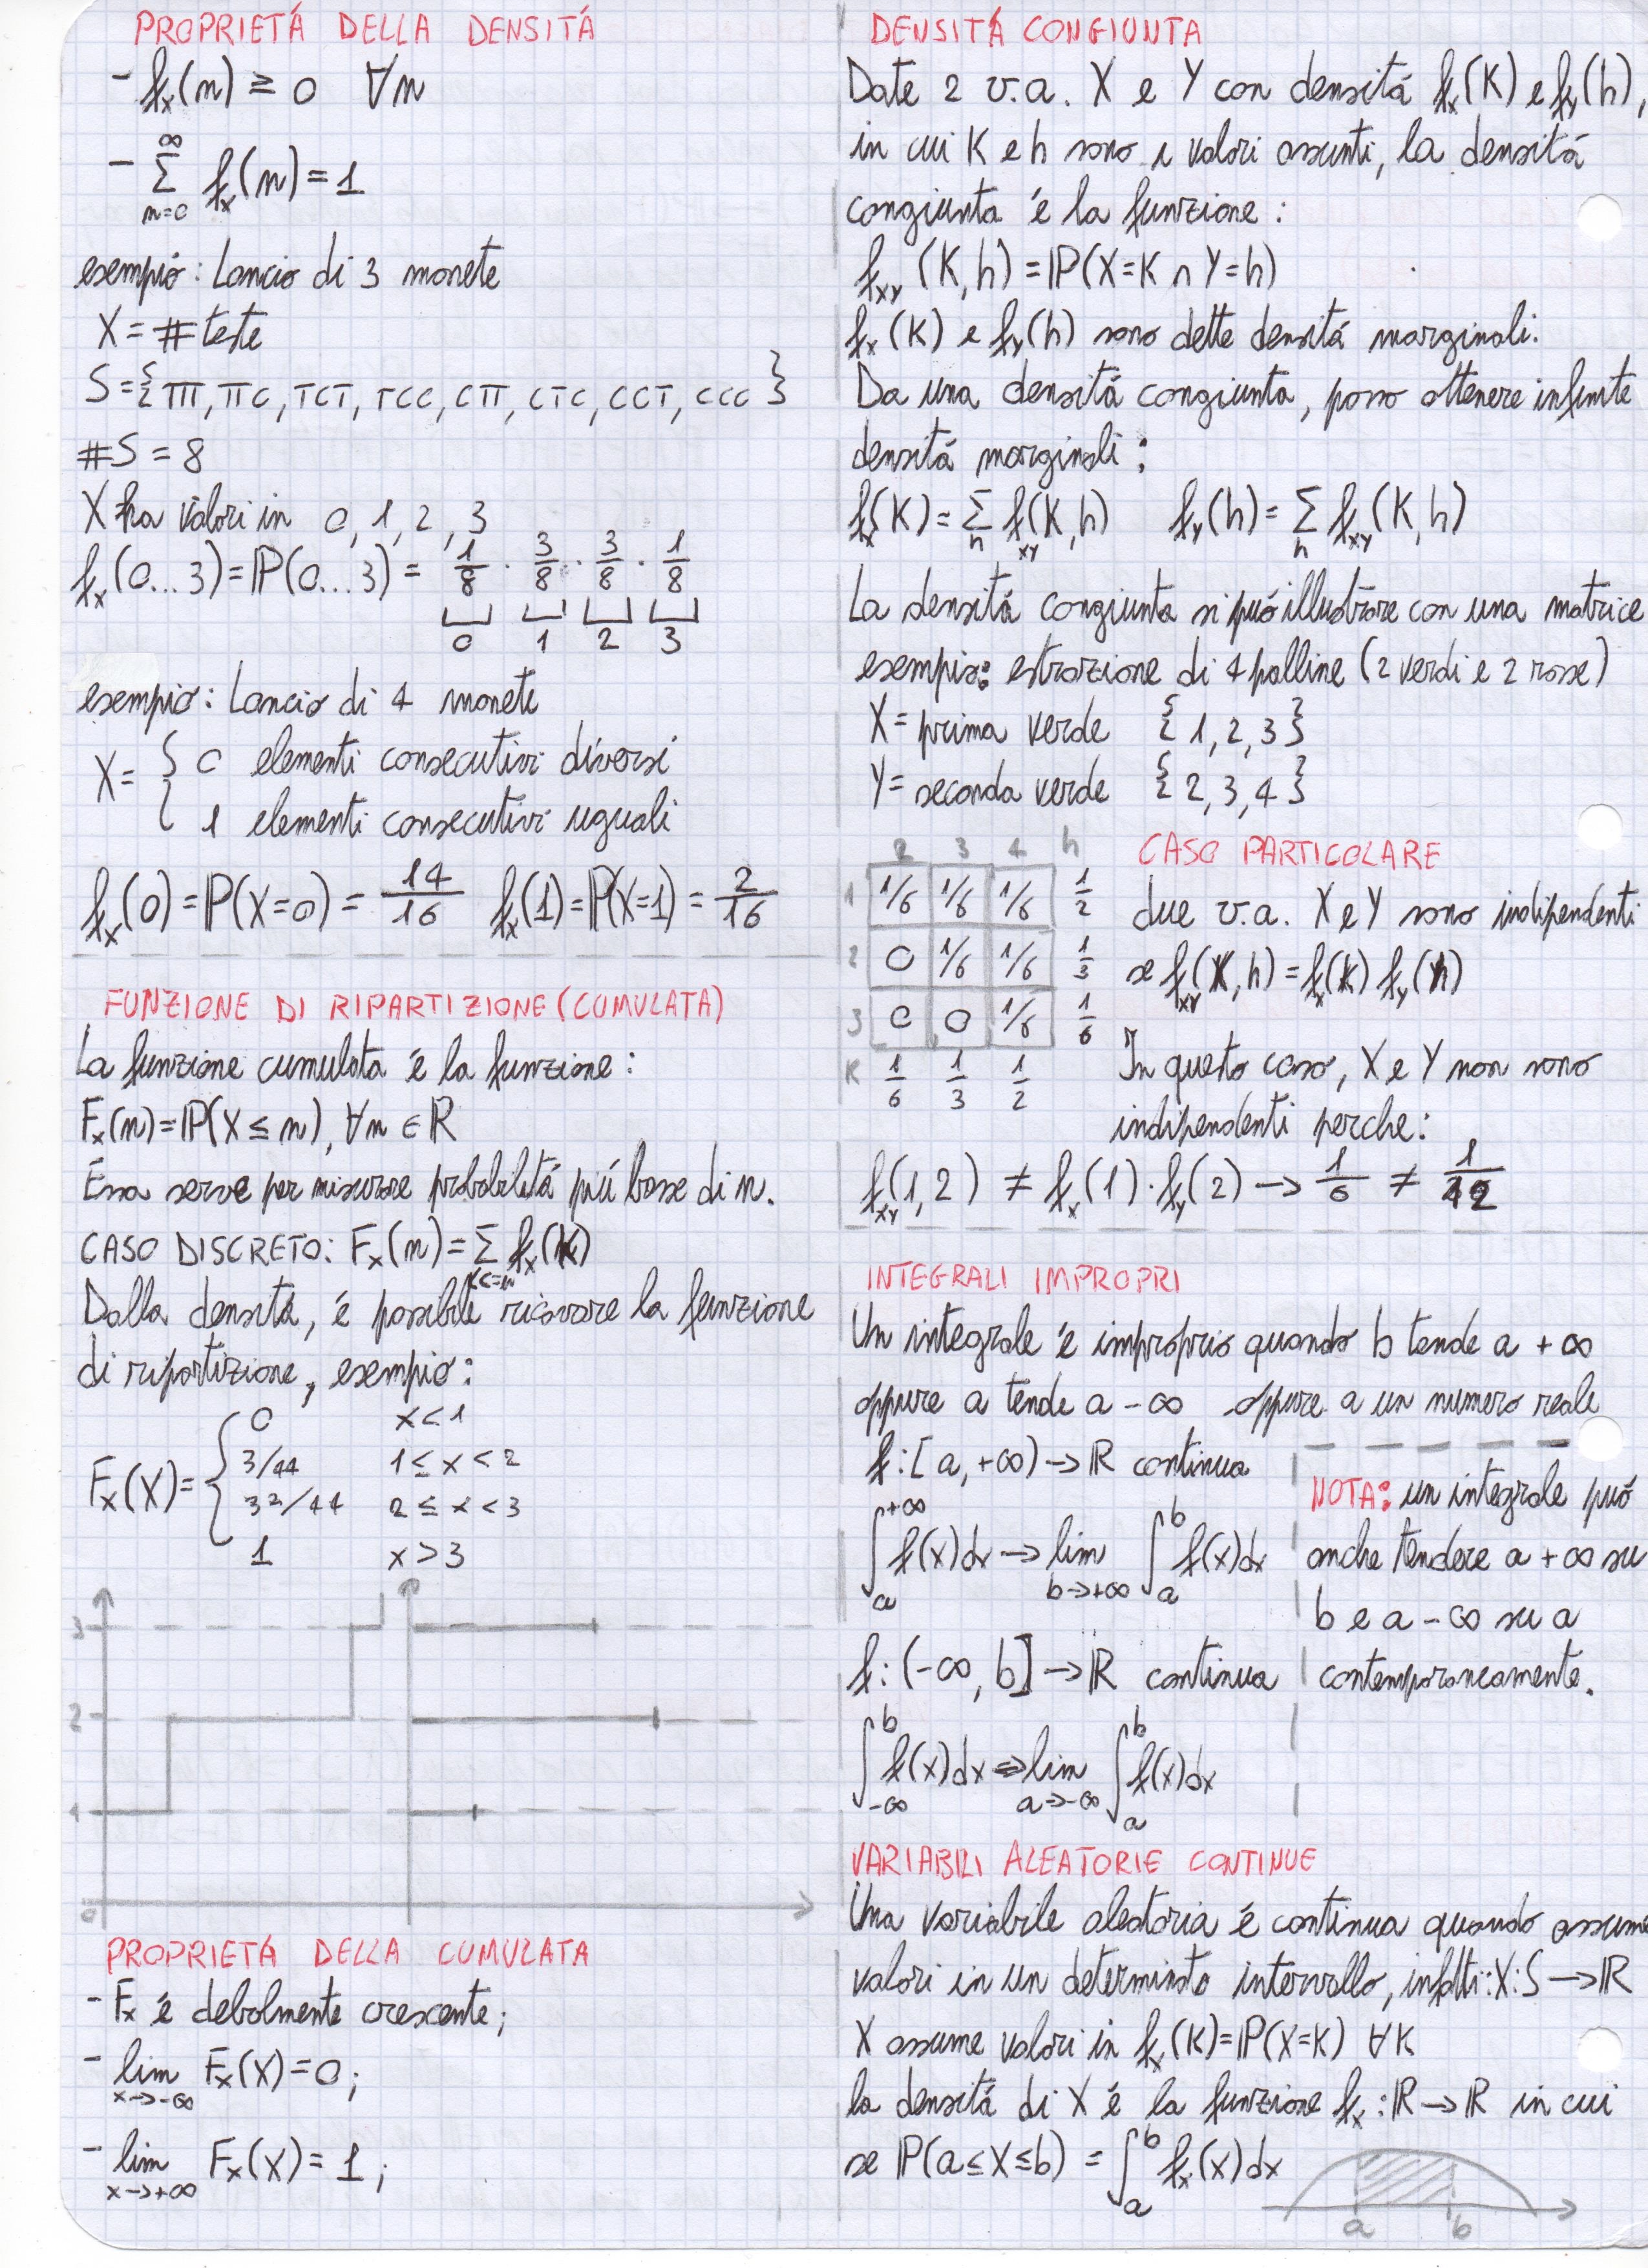 PROPRIETÁ DELLA DENSITÁ
- fx(n) ≥ 0 ∀n
- ∞ Σ n=0 fx(n) = 1
esempio: Lancio di 3 monete
X = # teste
S = { TTT, TTC, TCT, TCC, CTT, CTC, CCT, CCC }
#S = 8
X ha valori in 0, 1, 2, 3
fx(0...3) = P(0...3) = 1/8 · 3/8 · 3/8 · 1/8
0 1 2 3
esempio: Lancio di 4 monete
X = { 0 elementi consecutivi diversi
1 elementi consecutivi uguali
fx(0) = P(X=0) = 14/16 fx(1) = P(X=1) = 2/16
FUNZIONE DI RIPARTIZIONE (CUMULATA)
La funzione cumulata é la funzione:
Fx(n) = P(X ≤ n), ∀n ∈ R
Essa serve per misurare probabilitá piú basse di n.
CASO DISCRETO: Fx(n) = Σ K<=n fx(K)
Dalla densitá, é possibile ricavare la funzione
di ripartizione, esempio:
Fx(X) = { 0 x < 1
3/44 1 ≤ x < 2
32/44 2 ≤ x < 3
1 x > 3
3
2
1
0
PROPRIETÁ DELLA CUMULATA
- Fx é debolmente crescente;
- lim x→-∞ Fx(X) = 0;
- lim x→+∞ Fx(X) = 1;
DENSITÁ CONGIUNTA
Date 2 v.a. X e Y con densitá fx(K) e fy(h),
in cui K e h sono i valori assunti, la densitá
congiunta é la funzione:
fxy (K, h) = P(X=K ∩ Y=h)
fx(K) e fy(h) sono dette densitá marginali.
Da una densitá congiunta, posso ottenere infinite
densitá marginali:
fx(K) = Σ h fxy(K, h) fy(h) = Σ h fxy(K, h)
La densitá congiunta si puó illustrare con una matrice
esempio: estrazione di 4 palline (2 verdi e 2 rosse)
X = prima verde { 1, 2, 3 }
Y = seconda verde { 2, 3, 4 }
2 3 4 h
1 1/6 1/6 1/6 1/2
2 0 1/6 1/6 1/3
3 0 0 1/6 1/6
K 1/6 1/3 1/2
CASO PARTICOLARE
due v.a. X e Y sono indipendenti
se fxy(K, h) = fx(K) fy(h)
In questo caso, X e Y non sono
indipendenti perche:
fxy(1, 2) ≠ fx(1) · fy(2) → 1/6 ≠ 1/12
INTEGRALI IMPROPRI
Un integrale é improprio quando b tende a +∞
oppure a tende a -∞ oppure a un numero reale
f: [a, +∞) → R continua
∫ a +∞ f(x)dx → lim b→+∞ ∫ a b f(x)dx
f: (-∞, b] → R continua
∫ -∞ b f(x)dx ⇒ lim a→-∞ ∫ a b f(x)dx
NOTA: un integrale puó
anche tendere a +∞ su
b e a -∞ su a
contemporaneamente.
VARIABILI ALEATORIE CONTINUE
Una variabile aleatoria é continua quando assume
valori in un determinato intervallo, infatti: X: S → R
X assume valori in fx(K) = P(X=K) ∀K
la densitá di X é la funzione fx: R → R in cui
se P(a ≤ X ≤ b) = ∫ a b fx(x)dx
a b